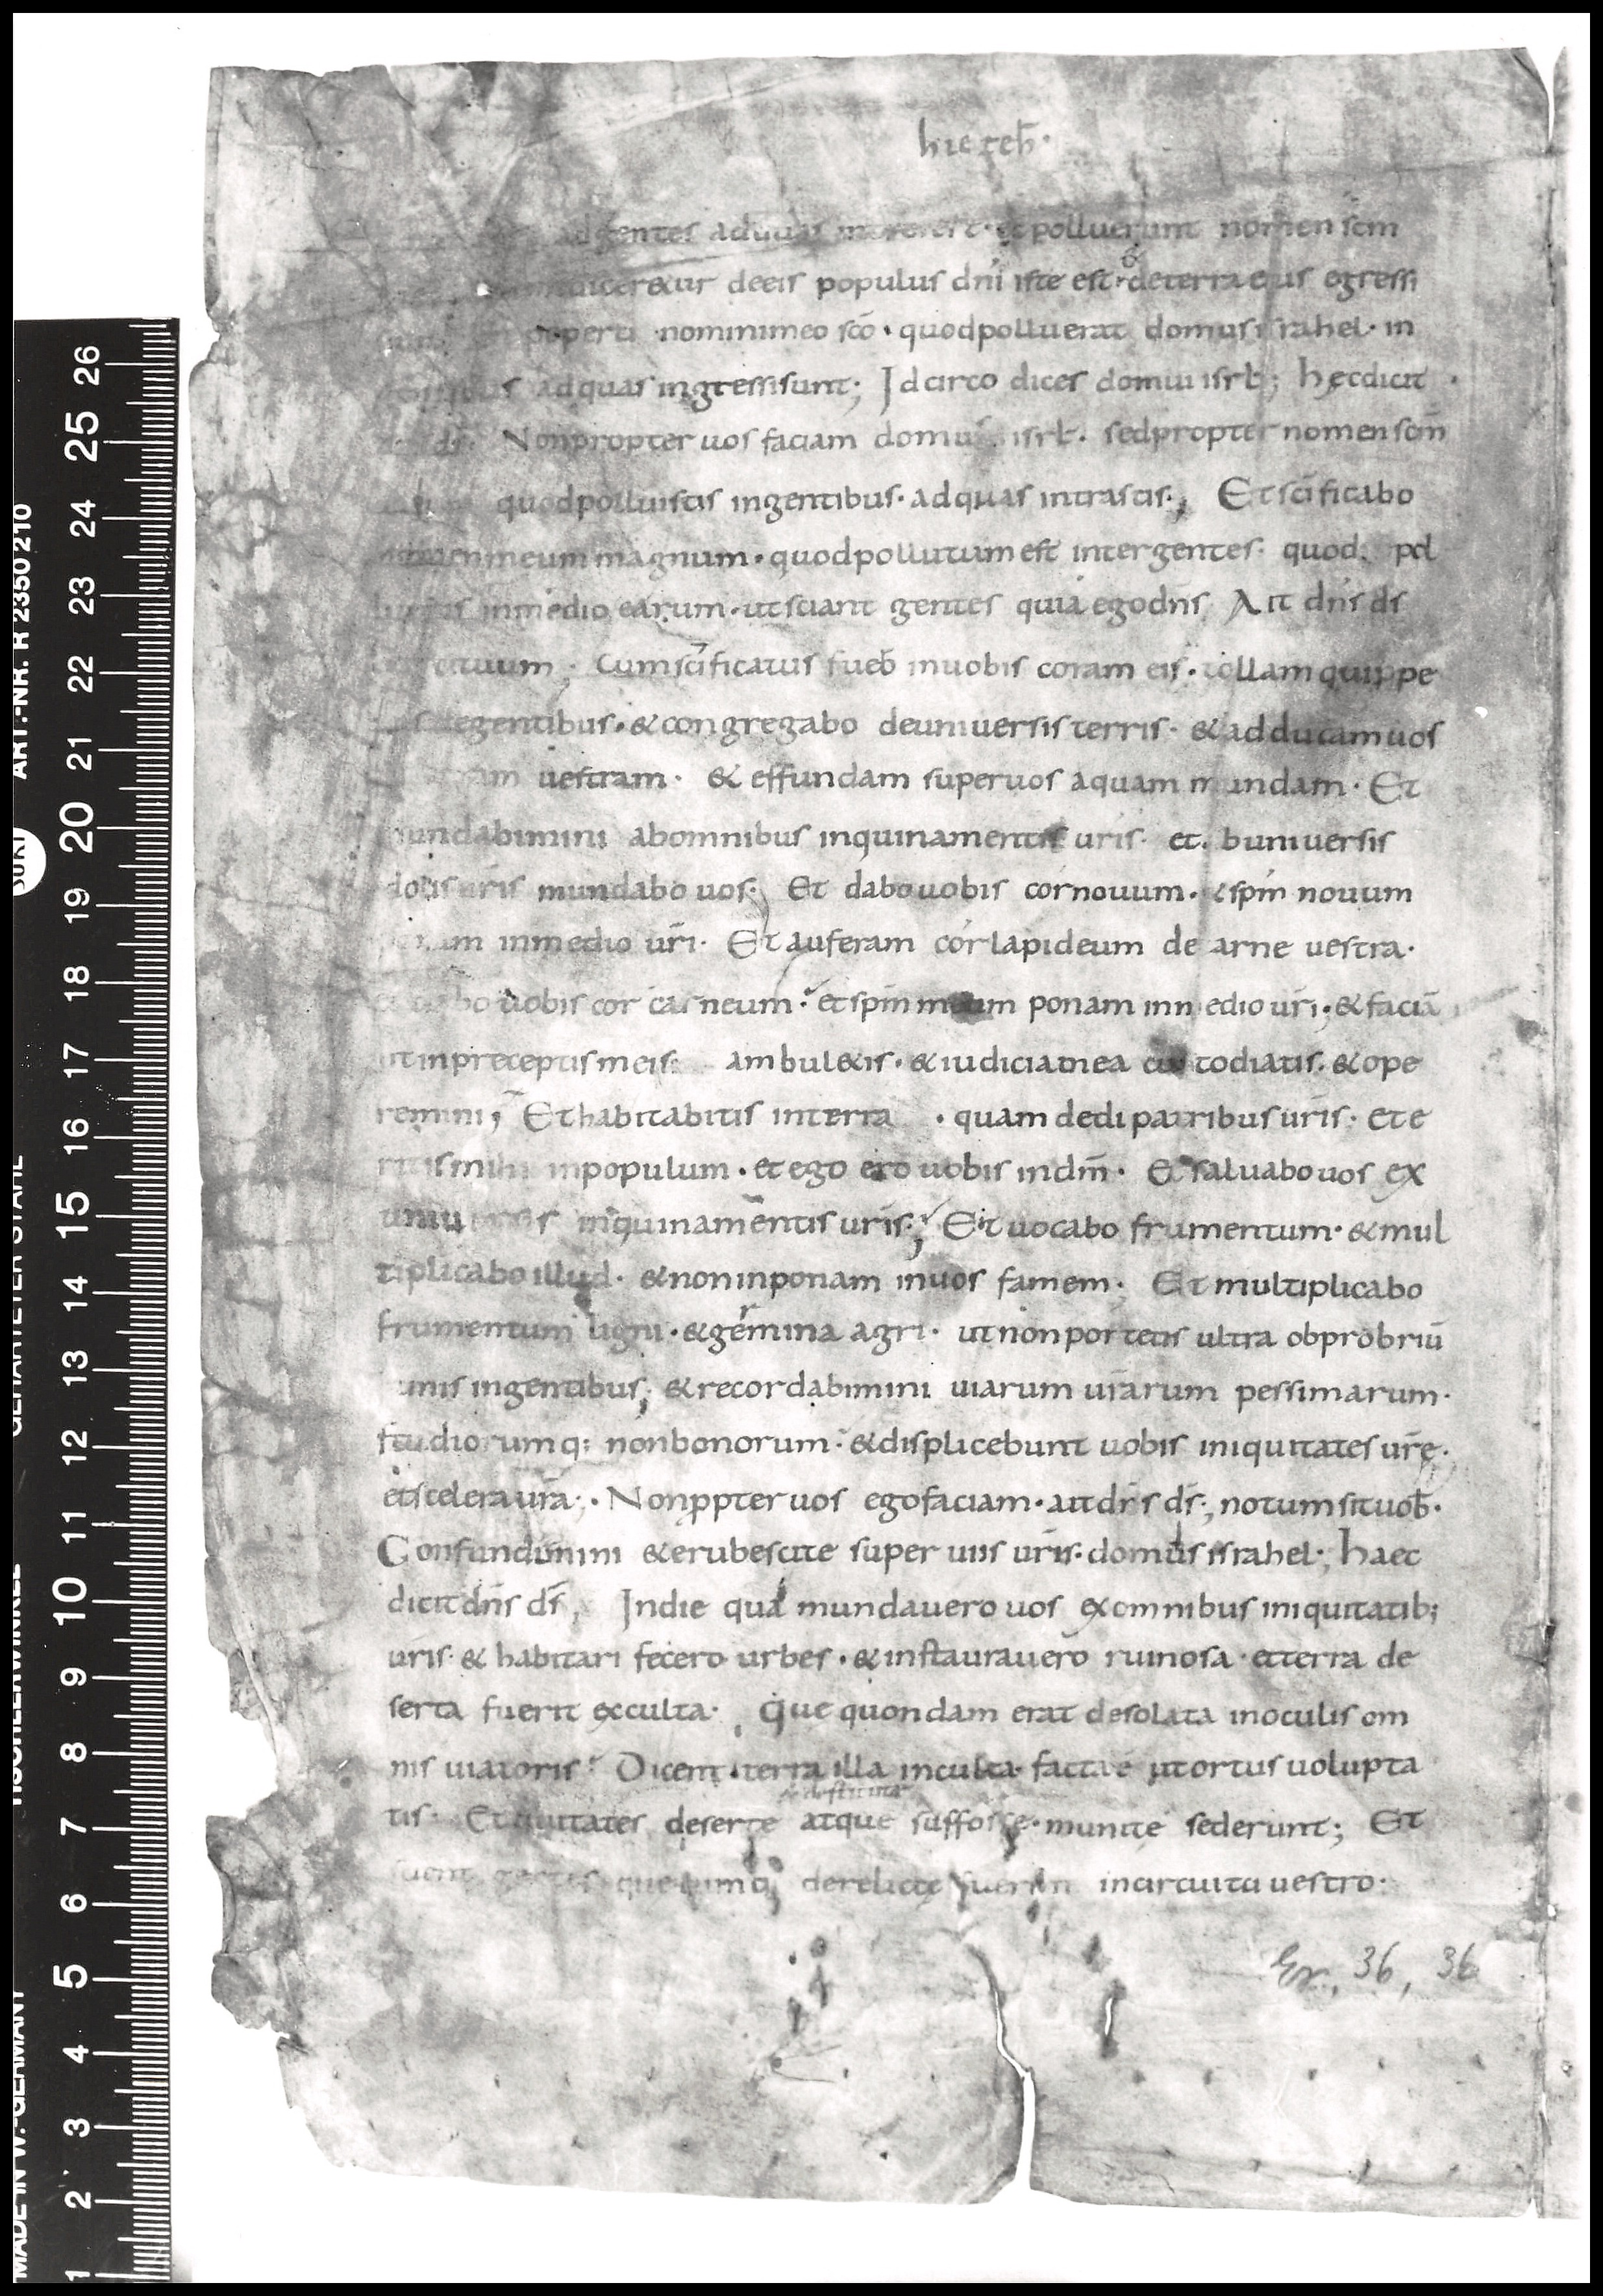 hiezeh̄·
ad gentes ad quas et polluerunt nomen scm̄
diceretur de eis populus dni iste est· & de terra eius egressi
peperci nomini meo scō· quod polluerat domus israhel· in
gentibus ad quas ingressi sunt; Idcirco dices domui isrł; hęc dicit
ds̄. Non propter vos faciam domus isrł. sed propter nomen scm̄
quod polluistis in gentibus· ad quas intrastis; Et scīficabo
nomen meum magnum· quod pollutum est inter gentes· quod pol
luistis in medio earum· ut sciant gentes quia ego dns̄ Ait dns̄ ds̄
cituum; Cum scīficatus fuero in uobis coram eis· tollam quippe
de gentibus· & congregabo de uniuersis terris· & adducam uos
uestram· & effundam super uos aquam mundam· Et
mundabimini ab omnibus inquinamentis ūris· et ab uniuersis
idolis ūris mundabo uos; Et dabo uobis cor nouum· & spm̄ nouum
in medio ūri· Et auferam cor lapideum de carne uestra·
et dabo uobis cor carneum· et spm̄ meum ponam in medio ūri· & faciā
ut in preceptis meis ambuletis· & iudicia mea custodiatis· & ope
remini; Et habitabitis in terra · quam dedi patribus ūris· et e
ritis mihi in populum· et ego ero uobis in dm̄· Et saluabo uos ex
uniuersis inquinamentis ūris; Et uocabo frumentum· & mul
tiplicabo illud· & non inponam in uos famem· Et multiplicabo
frumentum ligni· & gemina agri· ut non portetis ultra obprobriū
famis in gentibus; & recordabimini uiarum ūrarum pessimarum·
studiorumq; non bonorum· & displicebunt uobis iniquitates ūrę·
et scelera ūra· Non ꝓpter uos ego faciam· ait dns̄ ds̄; notum sit uob̄·
Confundimini & erubescite super uiis ūris· domus israhel; haec
dicit dns̄ ds̄; In die qua mundauero uos ex omnibus iniquitatib;
ūris· & habitari fecero urbes· & instaurauero ruinosa· et terra de
serta fuerit exculta· Que quondam erat desolata in oculis om
nis uiatoris· Dicent· terra illa inculta facta ē ut ortus uolupta
tis· Et ciuitates deserte atque suffosse· munitę sederunt; Et
scient gentes quecumq; derelictę fuerin in circuitu uestro·
36, 36
MADE IN W.-GERMANY
GEHÄRTETER STAHL
ART.-NR. R 2350 210
26
25
24
23
22
21
20
19
18
17
16
15
14
13
12
11
10
9
8
7
6
5
4
3
2
1